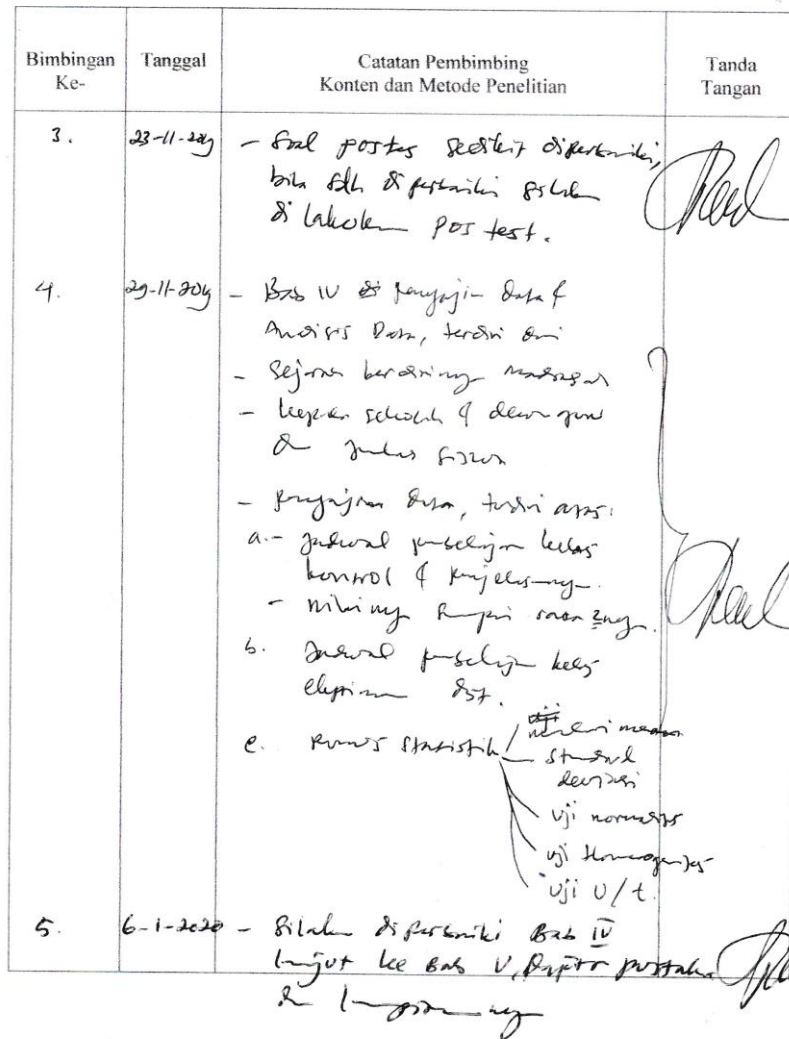 Bimbingan Ke- | Tanggal | Catatan Pembimbing Konten dan Metode Penelitian | Tanda Tangan
3. 23-11-2019 - Soal postes sedikit diperbaiki,
bila sdh diperbaiki silakan
dilakukan pos test.
4. 29-11-2019 - Bab IV penyajian Data &
Analisis Data, terdiri dari
- Sejarah berdirinya madrasah
- kepala sekolah & dewan guru
& jumlah siswa
- penyajian data, terdiri atas:
a. - jadwal pembelajaran kelas
kontrol & penjelasannya.
- nilainya
b. Jadwal pembelajaran kelas
eksperimen dst.
c. Rumus Statistik mencari mean
standard
deviasi
uji normalitas
uji Homogenitas
uji U/t.
5. 6-1-2020 - Silakan diperbaiki Bab IV
lanjut ke Bab V, Daftar pustaka
& lampirannya